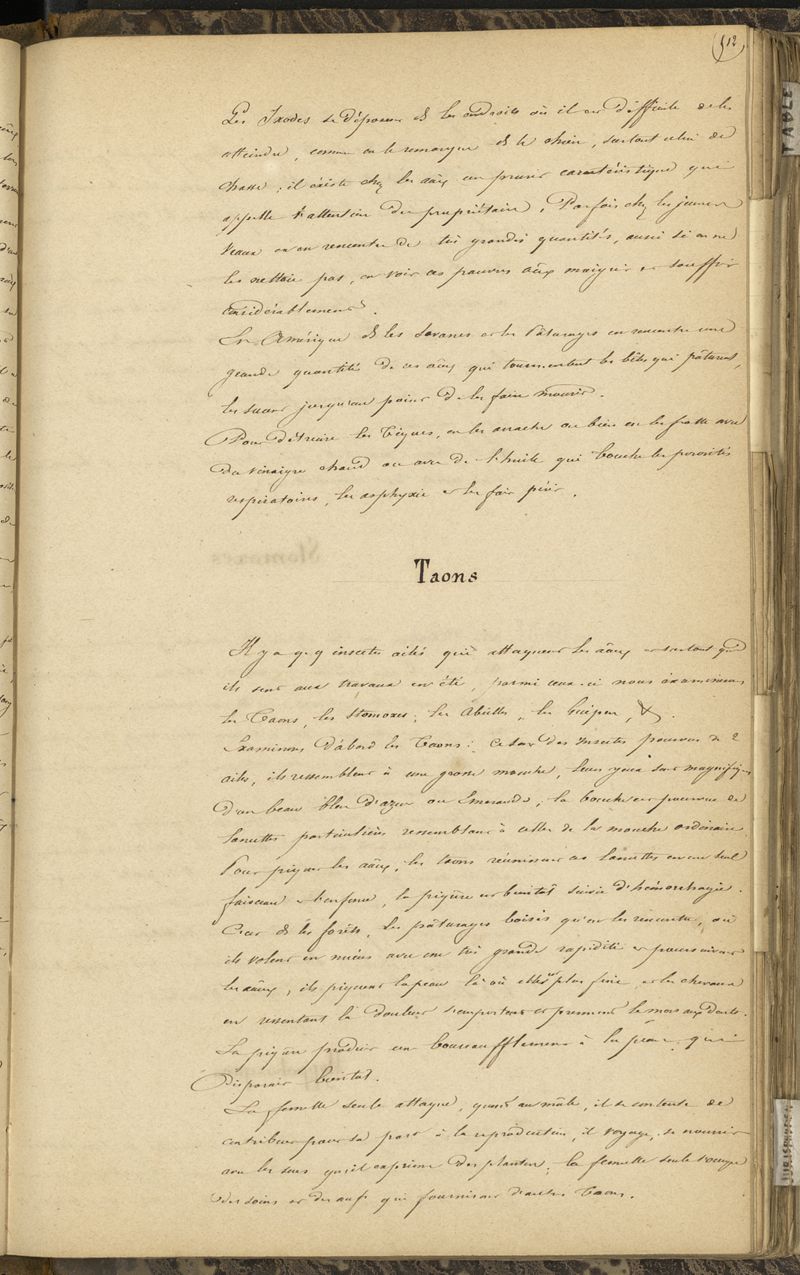 512
Les Ixodes se déposent ds les endroits où il est difficile de les
atteindre, comme on le remarque ds le chien, surtout celui de
chasse ; il existe chez les aâux un prurit caractéristique qui
appelle l'attention du propriétaire. Parfois chez les jeunes
veaux on en rencontre de très grandes quantités, aussi si on ne
les nettoie pas, on voit ces pauvres aâux maigrir et souffrir
considérablement.
En Amérique ds les Savanes et les Pâturages on rencontre une
grande quantité de ces aâux qui tourmentent les bêtes qui pâturent,
les sucent jusqu'au point de les faire mourir.
Pour détruire les Tiques, on les arrache ou bien on les frotte avec
du vinaigre chaud ou avec de l'huile qui bouche les porosités
respiratoires, les asphyxie et les fait périr.
Taons
Il y a qq insectes ailés qui attaquent les aâux et surtout qd
ils sont aux travaux en été, parmi ceux-ci nous examinerons
les Taons, les Stomoxes, les Abeilles, les Guêpes, &.
Examinons d'abord les Taons : ce sont des insectes pourvus de 2
ailes, ils ressemblent à une grosse mouche, leurs yeux sont magnifiques
d'un beau bleu d'azur ou Emeraude ; la bouche est pourvue de
lancettes particulières ressemblant à celles de la mouche ordinaire.
Pour piquer les aâux, les taons réunissent ces lancettes en un seul
faisceau et l'enfonce, la piqûre est bientôt suivie d'hémorrhagie.
C'est ds les forêts, les pâturages boisés qu'on les rencontre, où
ils volent en nuées avec une très grande rapidité et poursuivent
les aâux, ils piquent la peau là où elle est plus fine, et les chevaux
en ressentant la douleur s'emportent et prennent le mors aux dents.
La piqûre produit un boursoufflement à la peau qui
disparait bientôt.
La femelle seule attaque, quant au mâle, il se contente de
contribuer pour sa part à la reproduction, il voyage, se nourrit
avec les sucs qu'il exprime des plantes, la femelle seule s'occupe
des soins et des œufs qui fournissent d'autres Taons.
TABLE
JURISPRUDENCE